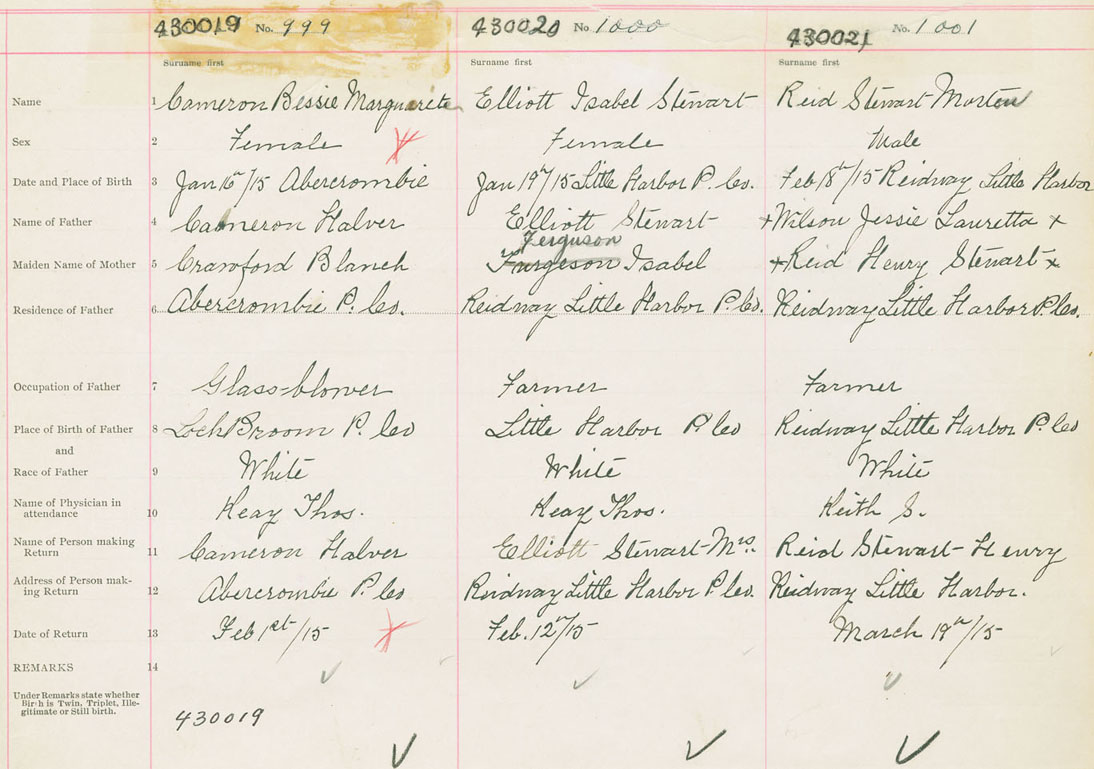 430019 No. 999 430020 No 1000 430021 No. 1001
Surname first Surname first Surname first
Name 1 Cameron Bessie Marguarete Elliott Isabel Stewart Reid Stewart Morten
Sex 2 Female Female Male
Date and Place of Birth 3 Jan /15 Abercrombie Jan 19th/15 Little Harbor P. Co. Feb 8th/15 Reidway Little Harbor
Name of Father 4 Cameron Halver Elliott Stewart +Wilson Jessie Lauretta x
Ferguson
Maiden Name of Mother 5 Crawford Blanch Furgeson Isabel +Reid Henry Stewart x
Residence of Father 6 Abercrombie P. Co. Reidway Little Harbor P. Co. Reidway Little Harbor P. Co.
Occupation of Father 7 Glass-blower Farmer Farmer
Place of Birth of Father 8 Loch Broom P. Co Little Harbor P. Co Reidway Little Harbor P. Co
and
Race of Father 9 White White White
Name of Physician in
attendance 10 Keay Thos. Keay Thos. Keith S.
Name of Person making
Return 11 Cameron Halver Elliott Stewart-Mrs. Reid Stewart-Henry
Address of Person mak-
ing Return 12 Abercrombie P. Co Reidway Little Harbor P. Co. Reidway Little Harbor.
Date of Return 13 Feb 1st/15 Feb. 12th/15 March 19th/15
REMARKS 14
Under Remarks state whether
Birth is Twin, Triplet, Ille-
gitimate or Still birth.
430019